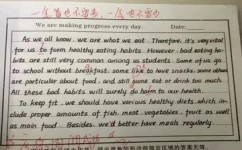 We are making progress every day.
Date:
As we all know, we are what we eat. Therefore, it's very vital
for us to form healthy eating habits. However, bad eating ha-
bits are still very common among us students. Some of us go
to school without breakfast, some like to have snacks, some others
are particular about food and still some eat or drink too much.
All these bad habits will surely do harm to our health.
To keep fit, we should have various healthy diets, which in-
clude proper amounts of fish, meat, vegetables, fruit as well
as main food. Besides, we'd better have meals regularly.